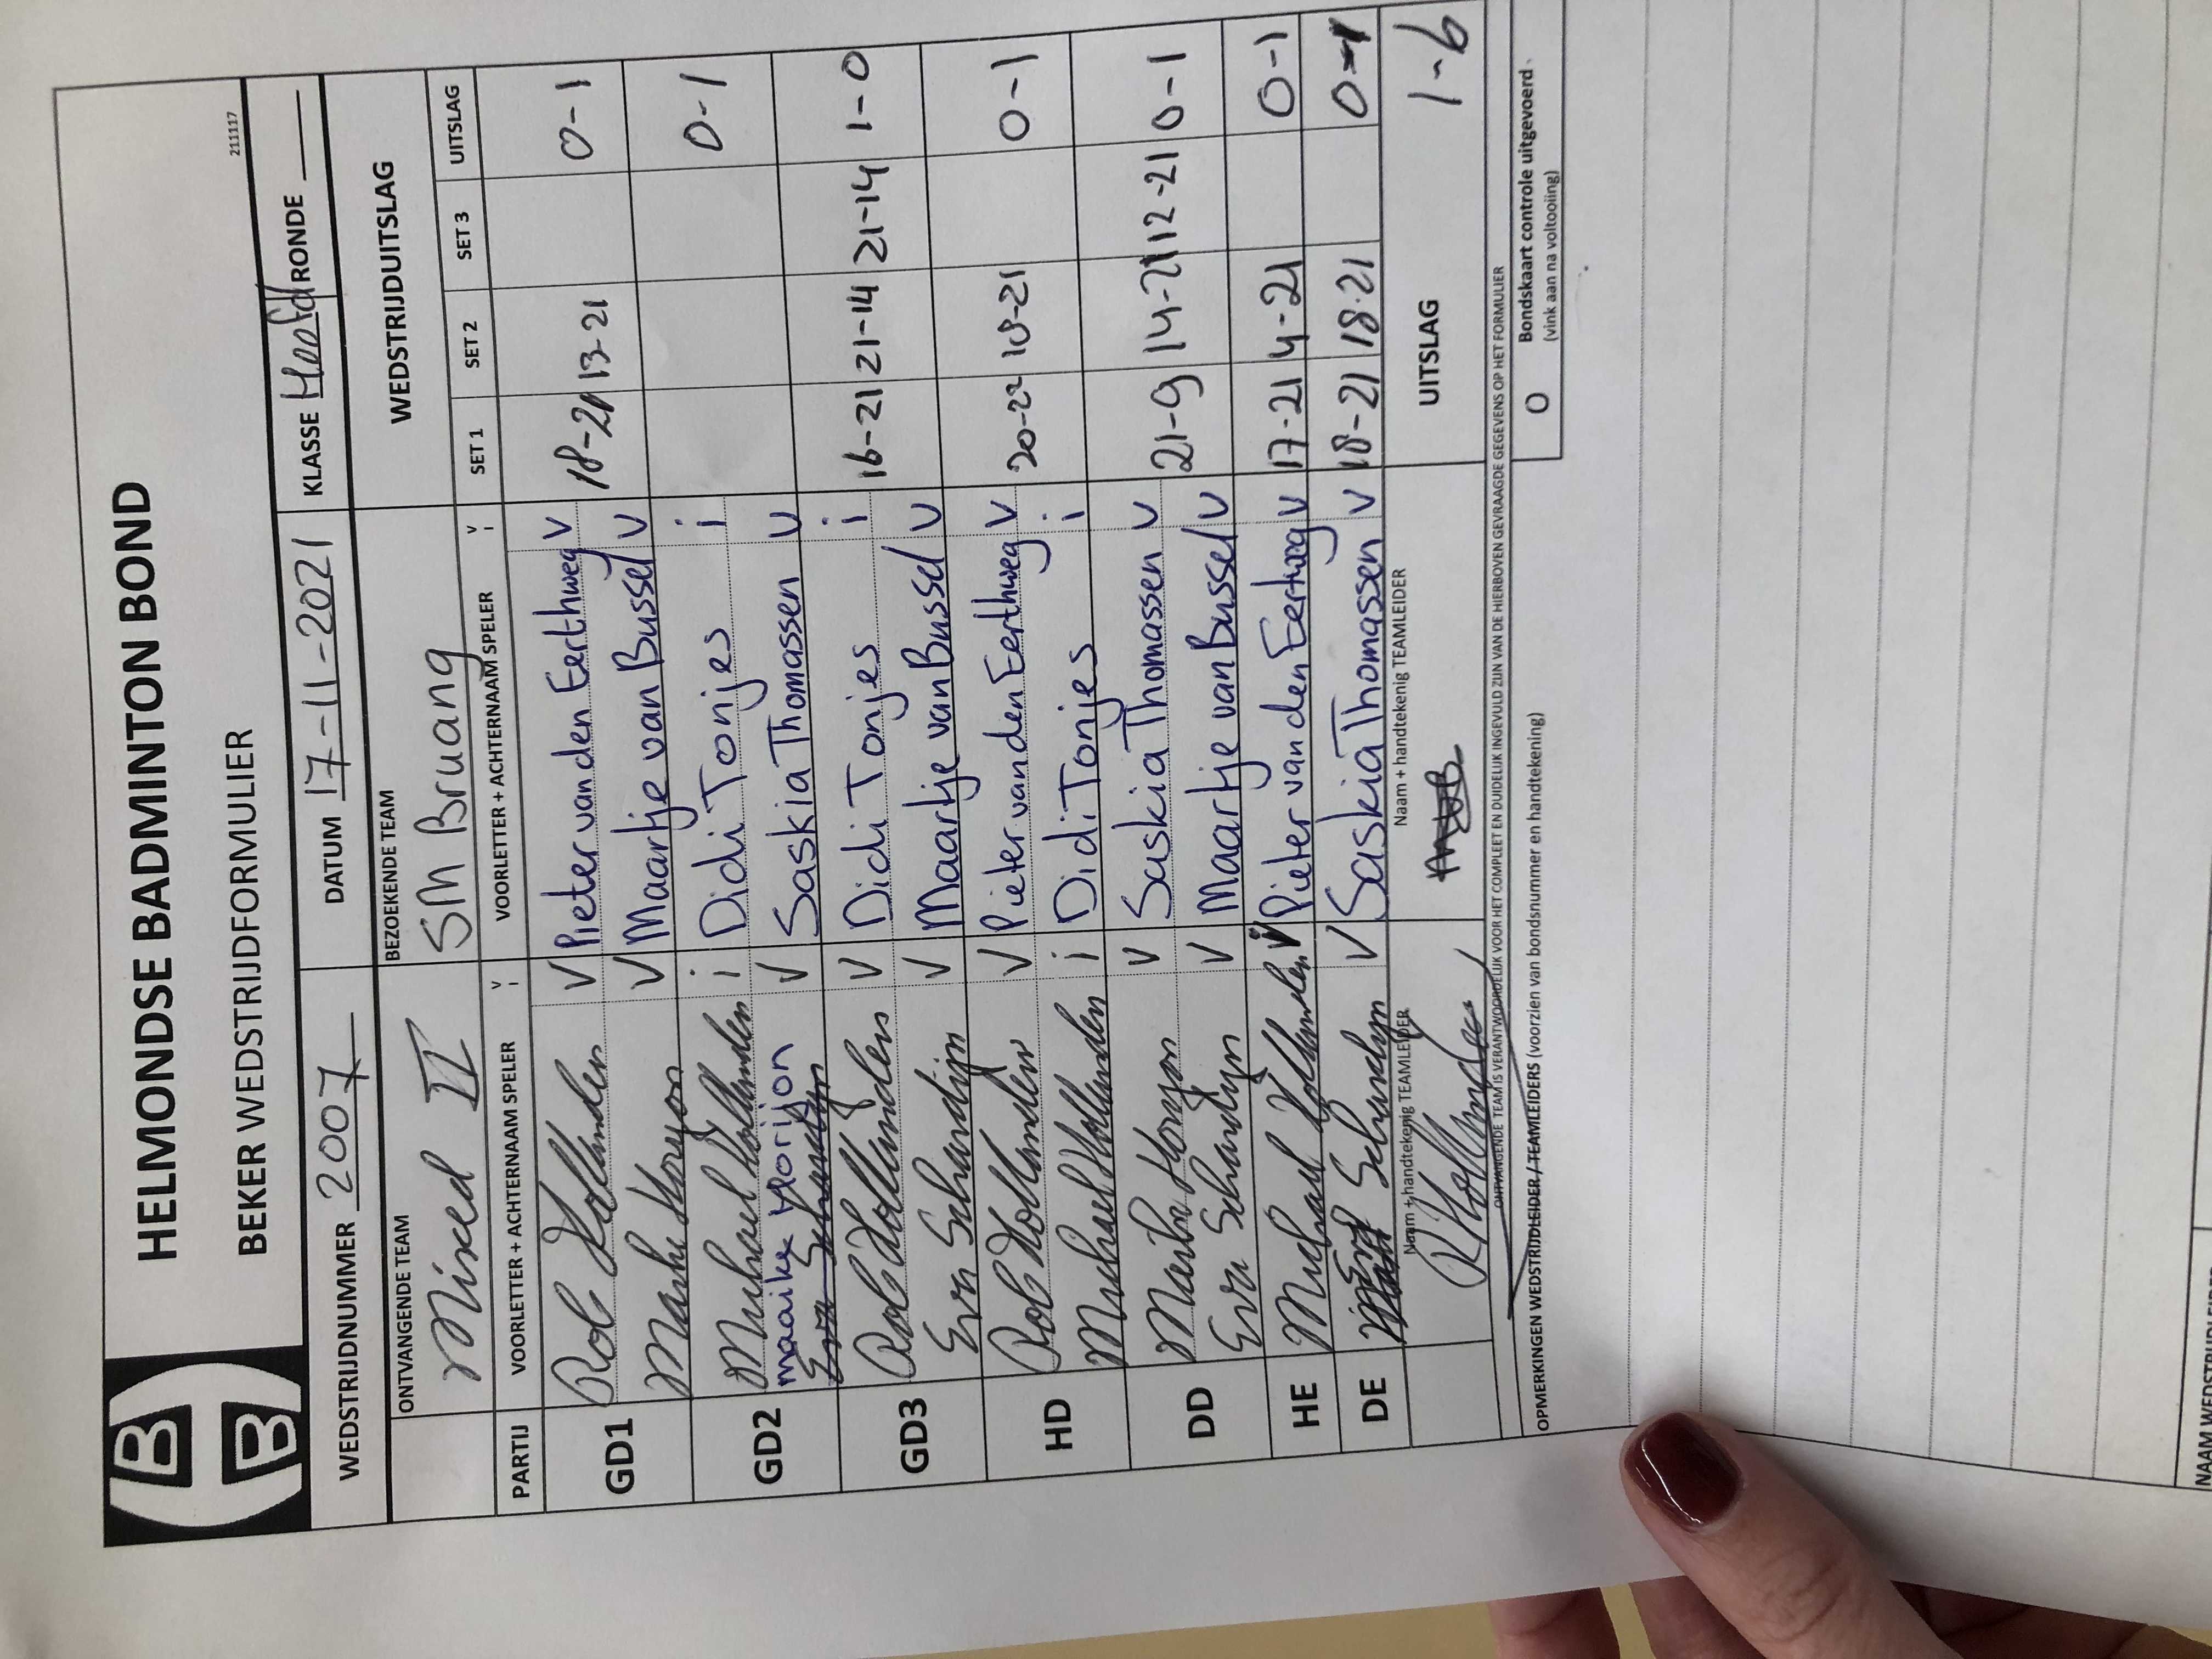 HELMONDSE BADMINTON BOND
BEKER WEDSTRIJDFORMULIER
211117
WEDSTRIJDNUMMER 2007 DATUM 17-11-2021 KLASSE Hoofd RONDE
ONTVANGENDE TEAM BEZOEKENDE TEAM WEDSTRIJDUITSLAG
Mixed II SM Bruang
PARTIJ VOORLETTER + ACHTERNAAM SPELER V i VOORLETTER + ACHTERNAAM SPELER V i SET 1 SET 2 SET 3 UITSLAG
GD1 Rob Hollanders V Pieter van den Eerthweg V 18-21 13-21 0-1
V Maartje van Bussel V
GD2 Michael Hollanders i Didi Tonjes i 0-1
maaike Horijon V Saskia Thomassen V
GD3 Rob Hollanders V Didi Tonjes i 16-21 21-14 21-14 1-0
Eva Schandijn V Maartje van Bussel V
HD Rob Hollanders V Pieter van den Eerthweg V 20-22 18-21 0-1
Michael Hollanders i Didi Tonjes i
DD Horijon V Saskia Thomassen V 21-9 14-21 12-21 0-1
Eva Schandijn V Maartje van Bussel V
HE Michael Hollanders V Pieter van den Eerthweg V 17-21 4-21 0-1
DE Schandijn V Saskia Thomassen V 18-21 18-21 0-1
Naam + handtekenig TEAMLEIDER Naam + handtekenig TEAMLEIDER UITSLAG 1-6
RHollanders
ONTVANGENDE TEAM IS VERANTWOORDELIJK VOOR HET COMPLEET EN DUIDELIJK INGEVULD ZIJN VAN DE HIERBOVEN GEVRAAGDE GEGEVENS OP HET FORMULIER
OPMERKINGEN WEDSTRIJDLEIDER / TEAMLEIDERS (voorzien van bondsnummer en handtekening) O Bondskaart controle uitgevoerd
(vink aan na voltooiing)
NAAM WEDSTRIJDLEIDER